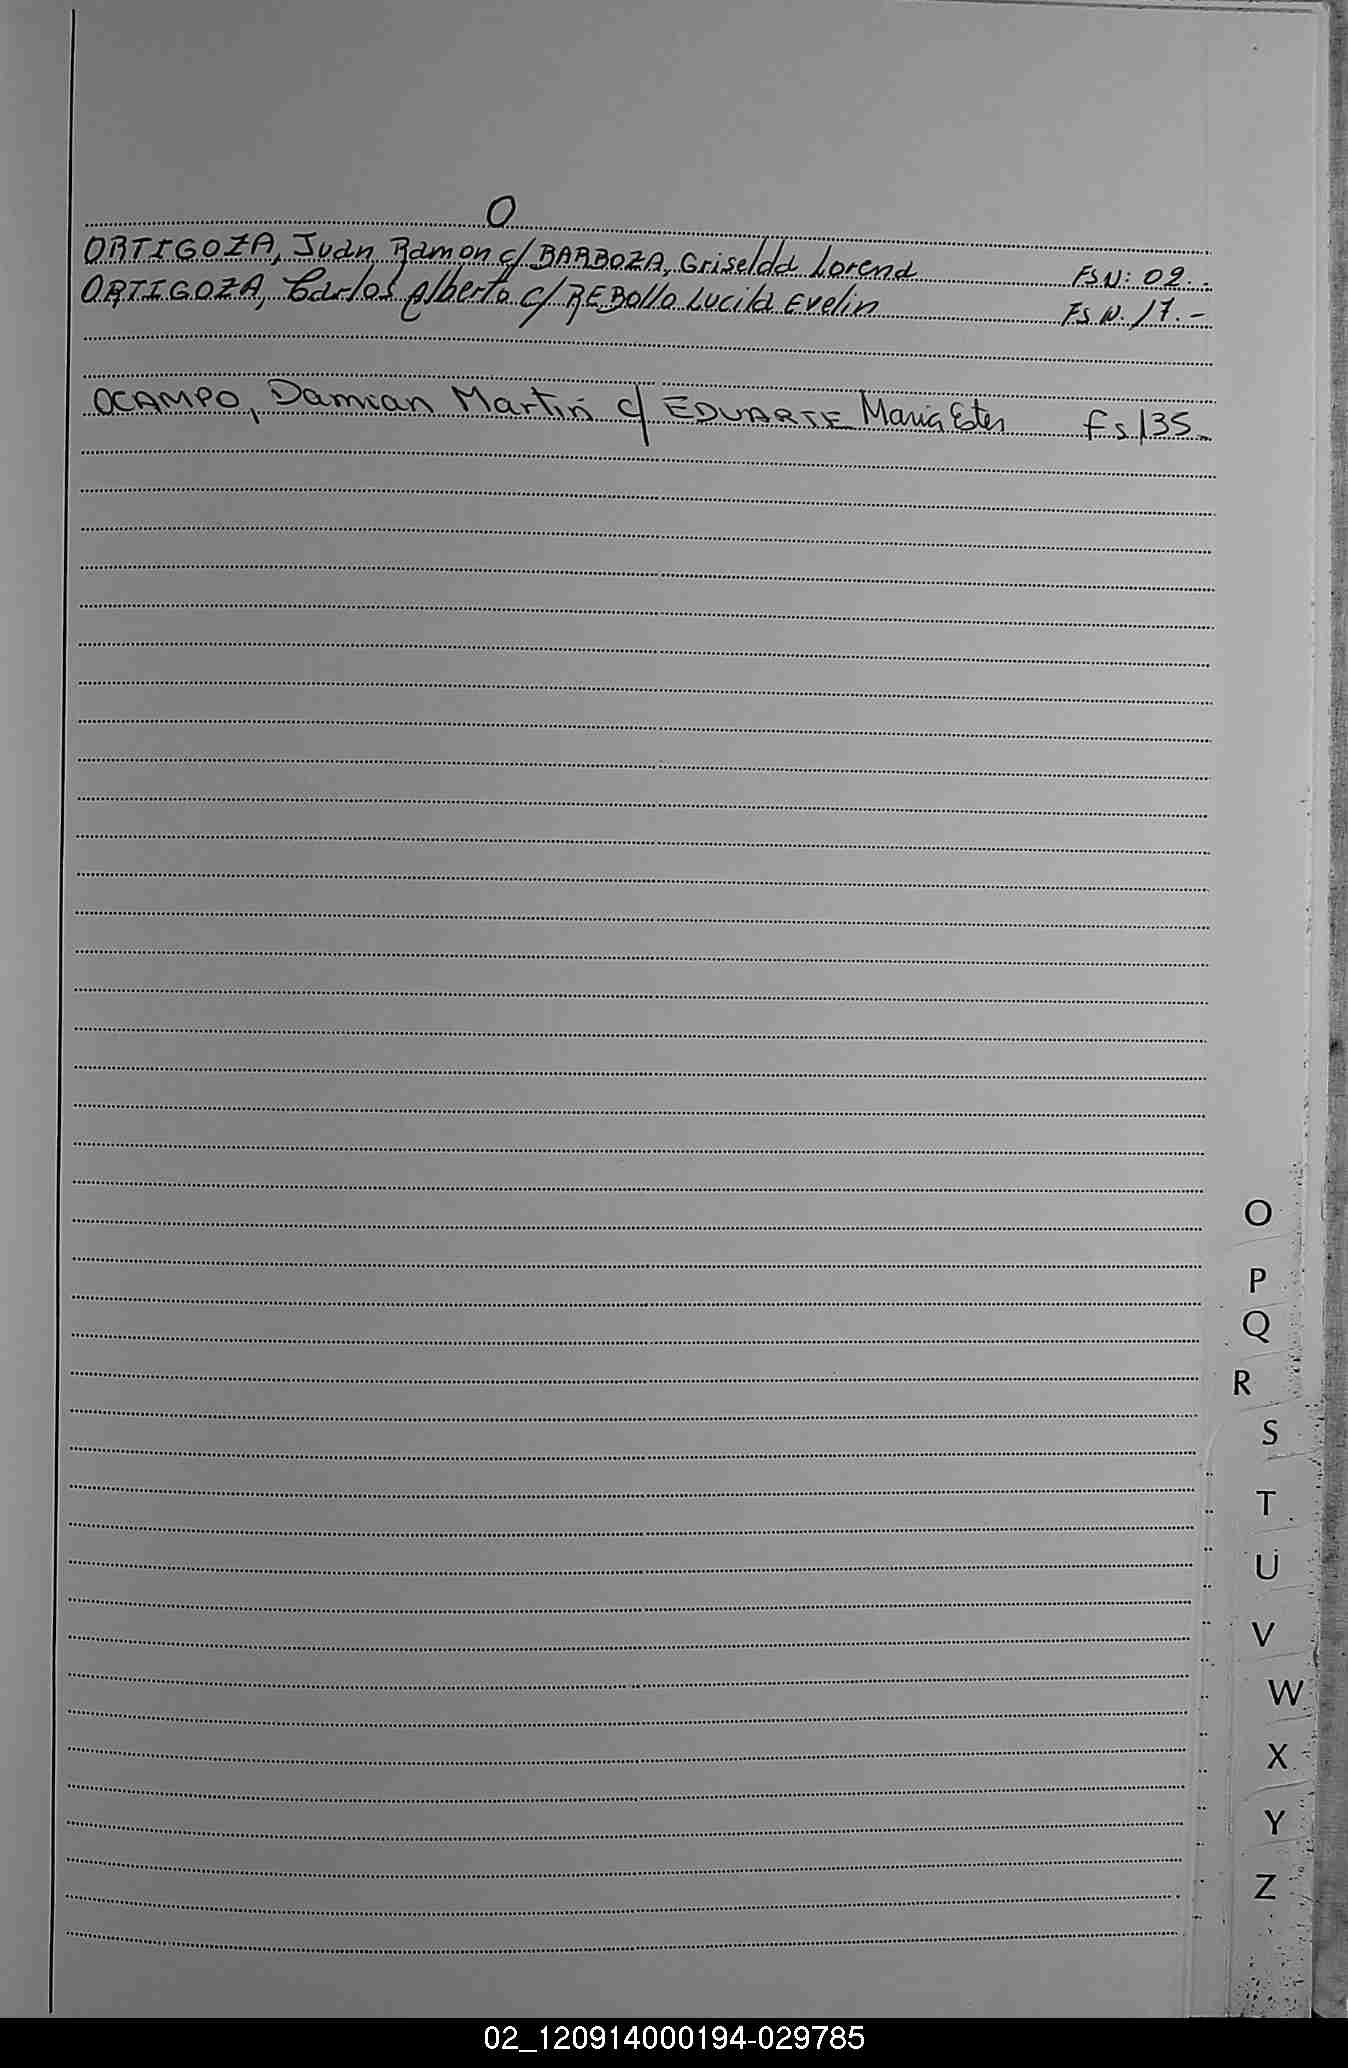 O
ORTIGOZA, Juan Ramon c/ BARBOZA, Griselda Lorena FS N: 09.-
ORTIGOZA, Carlos Alberto c/ REBollo Lucila Evelin FS N. 17.-
OCAMPO, Damian Martin c/ EDUARTE Maria Ester Fs 135-
O
P
Q
R
S
T
U
V
W
X
Y
Z
02_120914000194-029785